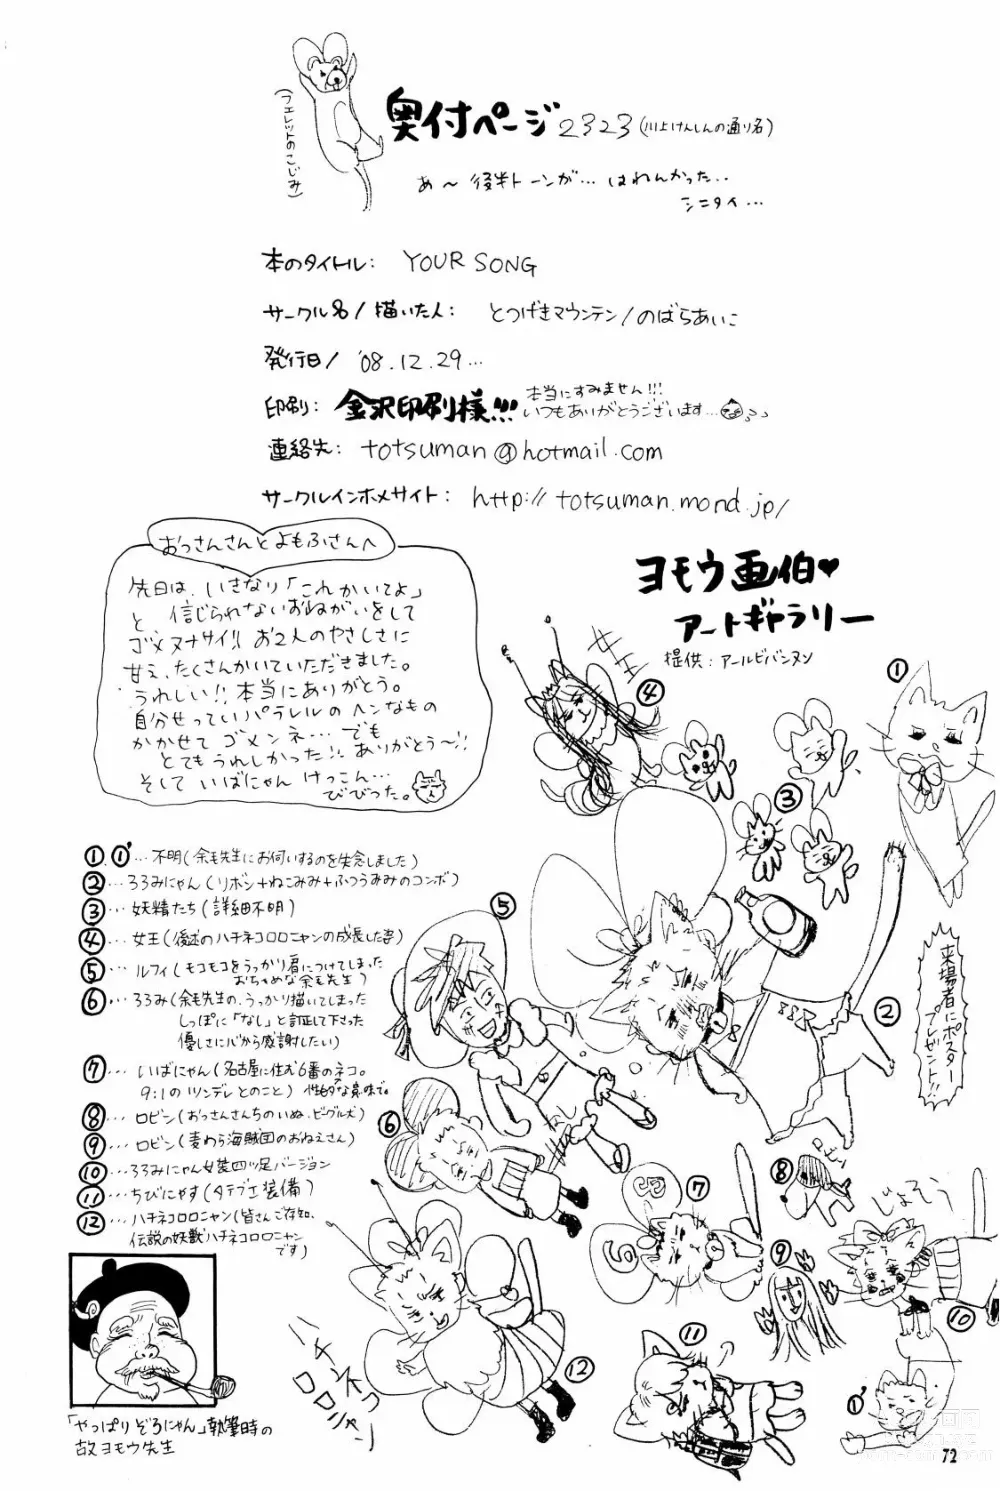 (フェレットのこじみ)
奥付ページ 2323 (川上けんしんの通り名)
あ〜 後半トーンが… はれんかった‥
シニタイ…
本のタイトル: YOUR SONG
サークル名/描いた人: とつげきマウンテン/のばらあいこ
発行日/ '08.12.29…
印刷: 金沢印刷様!!! 本当にすみません!!!
いつもありがとうございます…
連絡先: totsuman@hotmail.com
サークルインホメサイト: http://totsuman.mond.jp/
おっさんさんとよもふさんへ
先日は、いきなり「これかいてよ」
と 信じられないおねがいをして
ゴメヌナサイ!! お2人のやさしさに
甘え、たくさんかいていただきました。
うれしい!! 本当にありがとう。
自分せっていパラレルのヘンなもの
かかせて ゴメンネ… でも
とてもうれしかった!! ありがとう〜!!
そして いばにゃん けっこん…
びびった。
ヨモウ画伯♥
アートギャラリー
提供: アールビバンヌン
女王
④
①
③
⑤
②
来場者にポスタープレゼント!!
①.①'… 不明(余毛先生にお伺いするのを失念しました)
②… ろろみにゃん(リボン+ねこみみ+ふつうみみのコンボ)
③… 妖精たち(詳細不明)
④… 女王(後述のハチネコロロニャンの成長した姿)
⑤… ルフィ(モコモコをうっかり肩につけてしまった
おちゃめな余毛先生)
⑥… ろろみ(余毛先生の、うっかり描いてしまった
しっぽに「なし」と訂正して下さった
優しさに心から感謝したい)
⑦… いばにゃん(名古屋に住む6番のネコ。
9:1のツンデレとのこと) 性的な意味で。
⑧… ロビン(おっさんさんちのいぬ、ビーグル犬)
⑨… ロビン(麦わら海賊団のおねえさん)
⑩… ろろみにゃん女装四ツ足バージョン
⑪… ちびにゃす(タテブエ装備)
⑫… ハチネコロロニャン(皆さんご存知、
伝説の妖獣ハチネコロロニャン
です)
なし
⑥
⑦
⑧
じょそう
⑨
⑩
⑪
①'
⑫
ハチネコ
ロロニャン
「やっぱりぞろにゃん」執筆時の
故ヨモウ先生
72